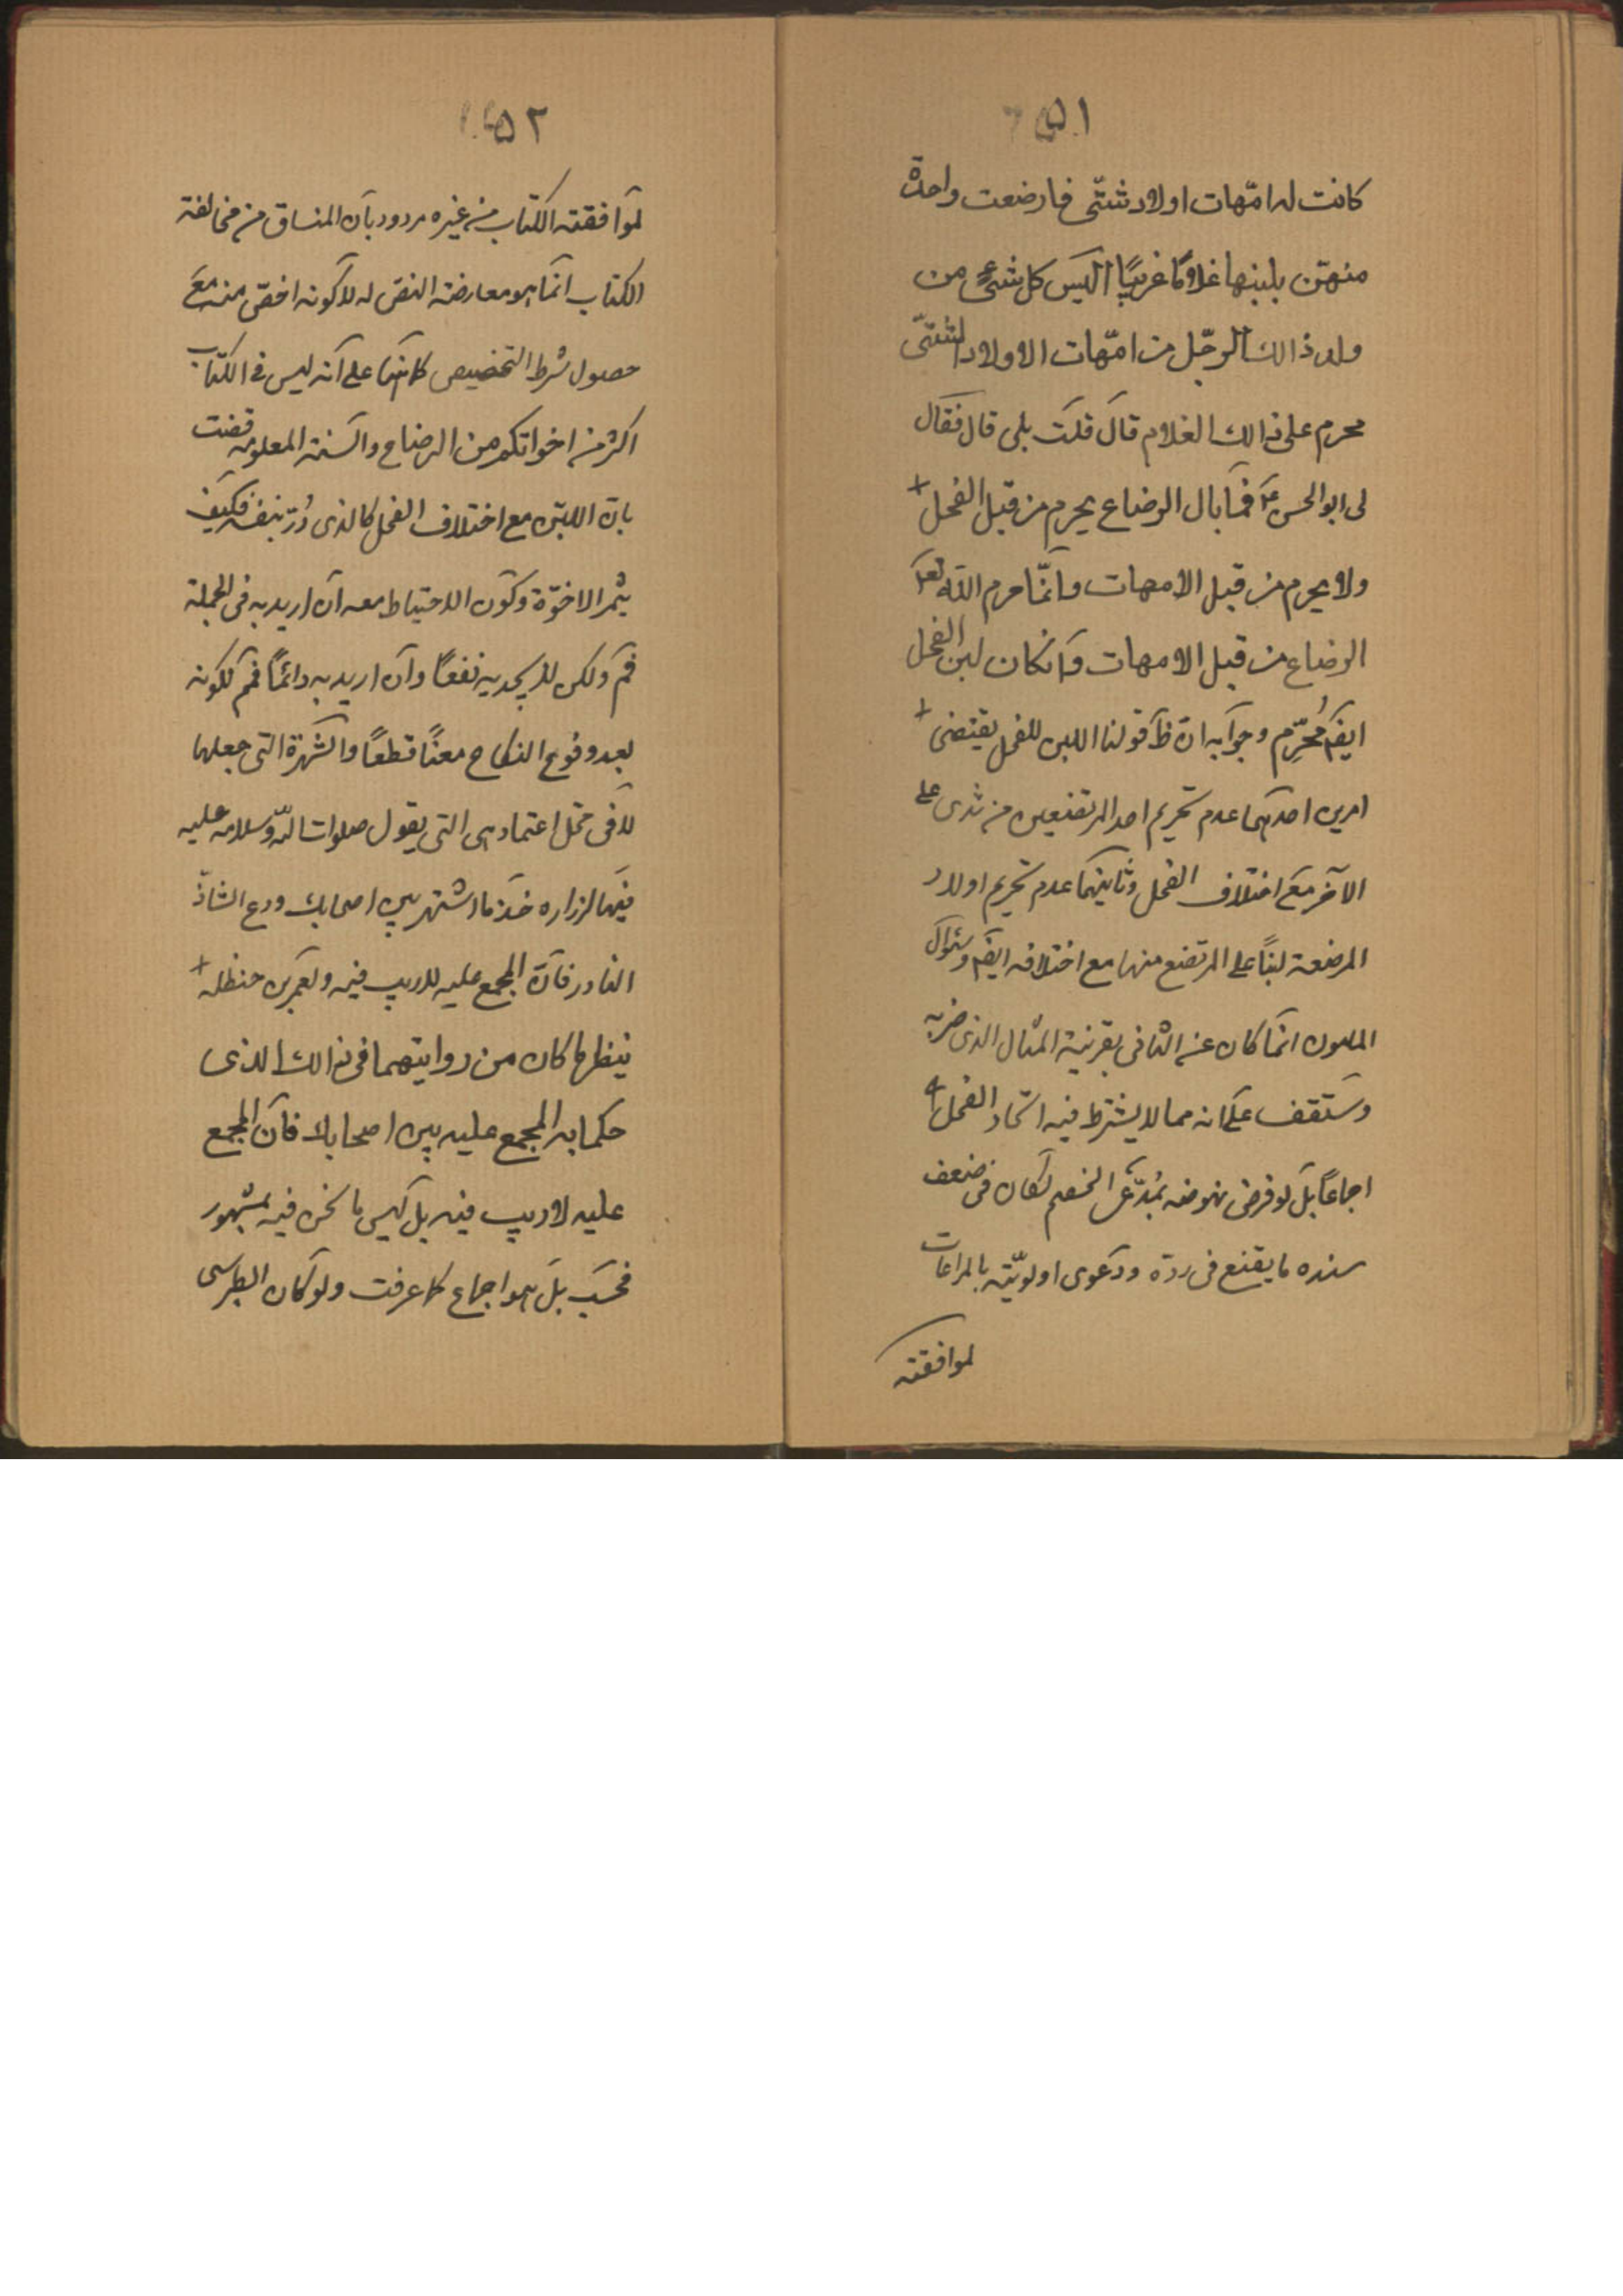 ٥١
كانت له امّهات اولاد شتّى فارضعت واحدة
منهنّ بلبنها غلاماً غريبًا اليس كل شىء من
ولد ذالك الرجل من امّهات الاولاد الشتّى
محرم على ذالك الغلام قال قلت بلى قال فقال
لى ابو الحسن ع فما بال الرضاع يحرم من قبل الفحل
ولا يحرم من قبل الامهات وانّما حرم اللّه تعم
الرضاع من قبل الامهات وانكان لبن الفحل
ايضم مُحرّم وجوابه انّ ظ قولنا اللبن للفحل يقتضى
امرين احدهما عدم تحريم احد المرتضعين من ثدى على
الآخر مع اختلاف الفحل وثانيهما عدم تحريم اولاد
المرضعة لبنًا على المرتضع منها مع اختلافه ايضم وسئوال
المامون انّما كان عن الثانى بقرينة المثال الذى ضربه
وستقف على انه مما لا يشترط فيه اتحاد الفحل
اجماعًا بل لو فرض نهوضه بمُدّعى الخصم لكان فى ضعف
سنده ما يقنع فى ردّه ودعوى اولويّته بالمراعات
لموافقته
٥٢
لموافقته الكتاب من غيره مردود بان المنساق من مخالفة
الكتاب انّما هو معارضة النصّ له لا كونه اخصّ منه مع
حصول شرط التخصيص كما هنا على انّه ليس فى الكتاب
اكثر من اخواتكم من الرضاع والسنة المعلومة قضت
بان اللبن مع اختلاف الفحل كالذى دُرّ بنفسه فكيف
يثمر الاخوّة وكون الاحتياط معه ان اريد به فى الجملة
فم ولكن لا يجديه نفعًا وان اريد به دائمًا فم لكونه
بعد وقوع النكاح معنًا قطعًا والشهرة التى جعلها
لا فى محل اعتماد هى التى يقول صلوات اللّه وسلامه عليه
فيها لزراره خذ ما اشتهر بين اصحابك ودع الشاذّ
النادر فانّ المجمع عليه لا ريب فيه ولعمر بن حنظله
ينظر ما كان من روايتهما فى ذالك الذى
حكما به المجمع عليه بين اصحابك فان المجمع
عليه لا ريب فيه بل ليس ما نحن فيه بمشهور
فحسب بل هو اجماع كما عرفت ولو كان الطبرسى